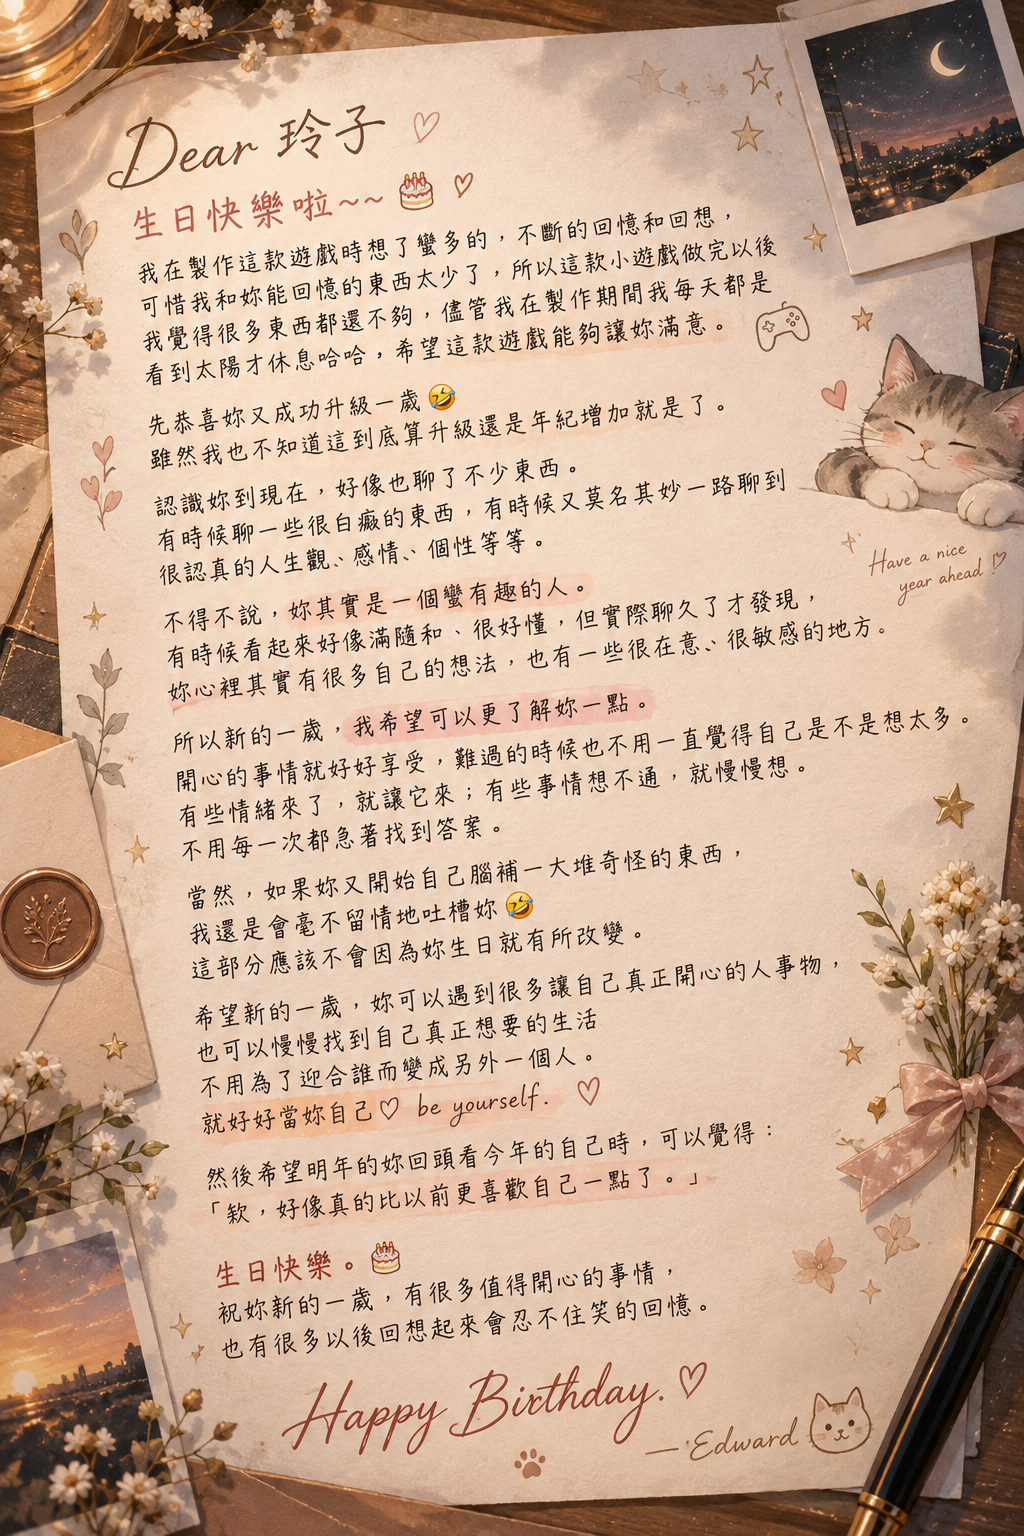 Dear 玲子 ♡
生日快樂啦~~ 🎂 ♡
我在製作這款遊戲時想了蠻多的，不斷的回憶和回想，
可惜我和妳能回憶的東西太少了，所以這款小遊戲做完以後
我覺得很多東西都還不夠，儘管我在製作期間我每天都是
看到太陽才休息哈哈，希望這款遊戲能夠讓妳滿意。
先恭喜妳又成功升級一歲🤣
雖然我也不知道這到底算升級還是年紀增加就是了。
認識妳到現在，好像也聊了不少東西。
有時候聊一些很白癡的東西，有時候又莫名其妙一路聊到
很認真的人生觀、感情、個性等等。
不得不說，妳其實是一個蠻有趣的人。
有時候看起來好像滿隨和、很好懂，但實際聊久了才發現，
妳心裡其實有很多自己的想法，也有一些很在意、很敏感的地方。
所以新的一歲，我希望可以更了解妳一點。
開心的事情就好好享受，難過的時候也不用一直覺得自己是不是想太多。
有些情緒來了，就讓它來；有些事情想不通，就慢慢想。
不用每一次都急著找到答案。
當然，如果妳又開始自己腦補一大堆奇怪的東西，
我還是會毫不留情地吐槽妳🤣
這部分應該不會因為妳生日就有所改變。
希望新的一歲，妳可以遇到很多讓自己真正開心的人事物，
也可以慢慢找到自己真正想要的生活
不用為了迎合誰而變成另外一個人。
就好好當妳自己♡ be yourself. ♡
然後希望明年的妳回頭看今年的自己時，可以覺得：
「欸，好像真的比以前更喜歡自己一點了。」
生日快樂。🎂
祝妳新的一歲，有很多值得開心的事情，
也有很多以後回想起來會忍不住笑的回憶。
Happy Birthday. ♡
— Edward
Have a nice
year ahead ! ♡